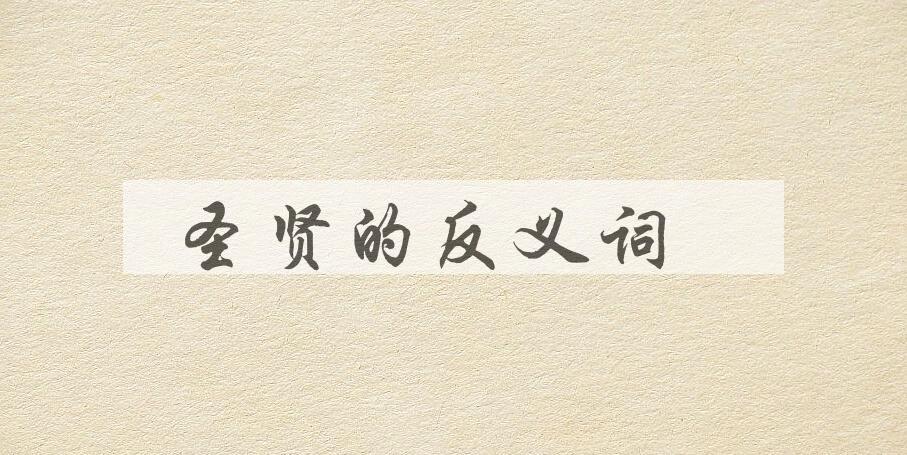 圣贤的反义词